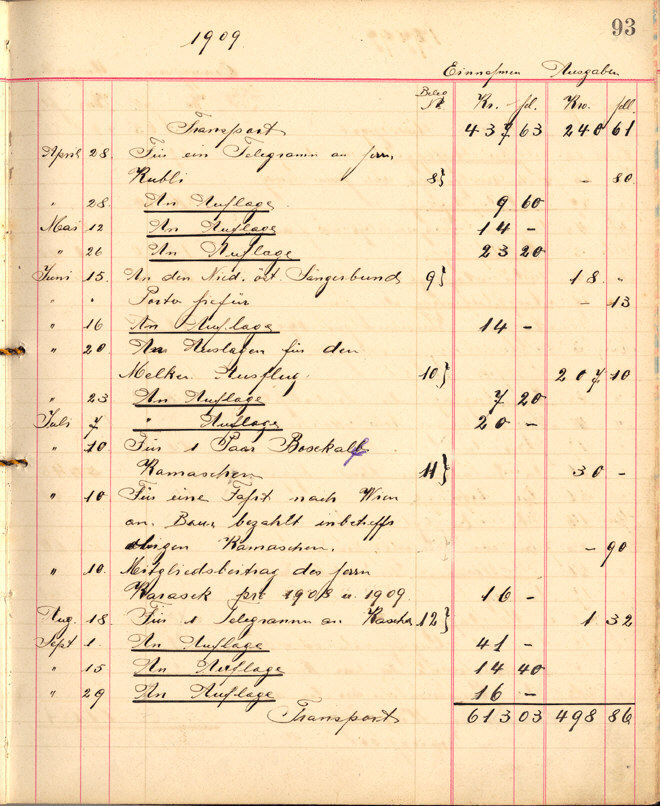 93
1909
Einnahmen Ausgaben
Beleg Nr. Kr. hl. Kr. hll.
Transport 437 63 240 61
April 28. Für ein Telegramm an Herrn
Kubli 8} - 80
" 28. An Auflage 9 60
Mai 12 An Auflage 14 -
" 26 An Auflage 23 20
Juni 15. An den Nied. öst. Sängerbund 9} 18 "
" " Porto hiefür - 13
" 16 An Auflage 14 -
" 20 An Auslagen für den
Melker Ausflug 10} 207 10
" 23 An Auflage 7 20
Juli 7 " Auflage 20 -
" 10 Für 1 Paar Boxkalb
Kamaschen 11} 30 -
" 10 Für eine Fahrt nach Wien
an. Baur bezahlt inbetreffs
obigen Kamaschen. - 90
" 10. Mitgliedsbeitrag des Herrn
Karasek pro 1908 u. 1909. 16 -
Aug. 18. Für 1 Telegramm an 12} 1 32
Sept 1. An Auflage 41 -
" 15 An Auflage 14 40
" 29 An Auflage 16 -
Transport 613 03 498 86